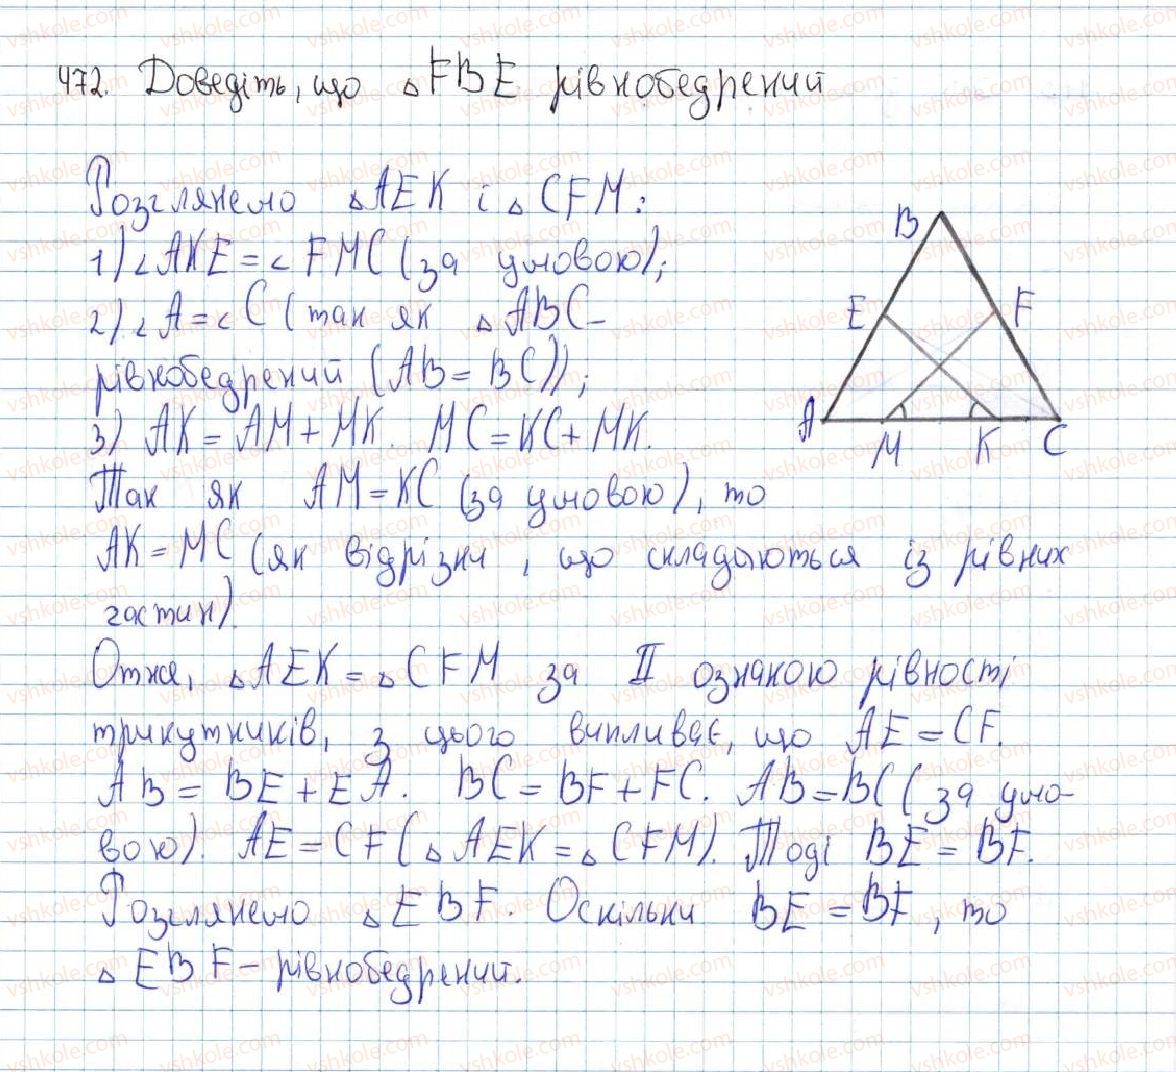 472. Доведіть, що △FBE рівнобедрений
Розглянемо △AEK і △CFM:
1) ∠AKE = ∠FMC (за умовою);
2) ∠A = ∠C (так як △ABC –
рівнобедрений (AB = BC));
3) AK = AM + MK. MC = KC + MK.
Так як AM = KC (за умовою), то
AK = MC (як відрізки, що складаються із рівних
частин).
Отже, △AEK = △CFM за II ознакою рівності
трикутників, з цього випливає, що AE = CF.
AB = BE + EA. BC = BF + FC. AB = BC (за умо-
вою). AE = CF (△AEK = △CFM). Тоді BE = BF.
Розглянемо △EBF. Оскільки BE = BF, то
△EBF – рівнобедрений.
B
E F
A M K C
vshkole.com